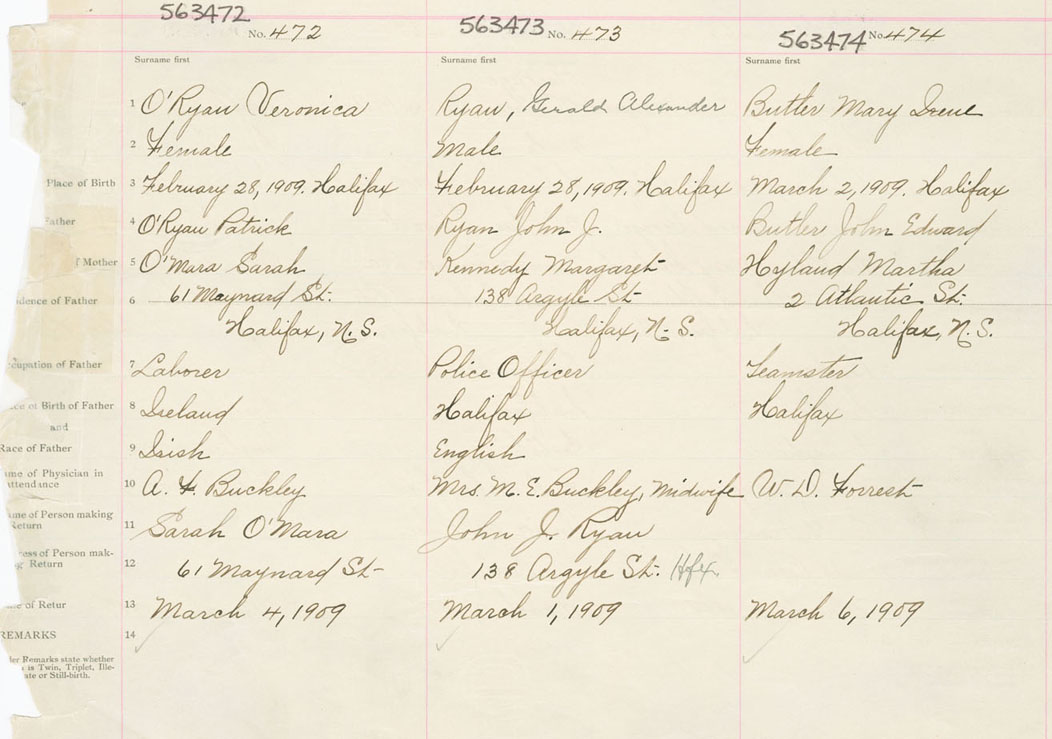 563472 No. 472 563473 No. 473 563474 No. 474
Surname first Surname first Surname first
1 O'Ryan Veronica Ryan, Gerald Alexander Butler Mary Irene
2 Female Male Female
Place of Birth 3 February 28, 1909. Halifax February 28, 1909. Halifax March 2, 1909. Halifax
Father 4 O'Ryan Patrick Ryan John J. Butler John Edward
f Mother 5 O'Mara Sarah Kennedy Margaret Hyland Martha
idence of Father 6 61 Maynard St. 138 Argyle St 2 Atlantic St.
Halifax, N.S. Halifax, N.S. Halifax, N.S.
ccupation of Father 7 Laborer Police Officer Teamster
ce of Birth of Father 8 Ireland Halifax Halifax
and
Race of Father 9 Irish English
ame of Physician in
attendance 10 A. F. Buckley Mrs. M. E. Buckley, Midwife W. D. Forrest
ame of Person making
Return 11 Sarah O'Mara John J. Ryan
ress of Person mak-
g Return 12 61 Maynard St 138 Argyle St. Hfx
te of Retur 13 March 4, 1909 March 1, 1909 March 6, 1909
REMARKS 14
der Remarks state whether
is Twin, Triplet, Ille-
ate or Still-birth.